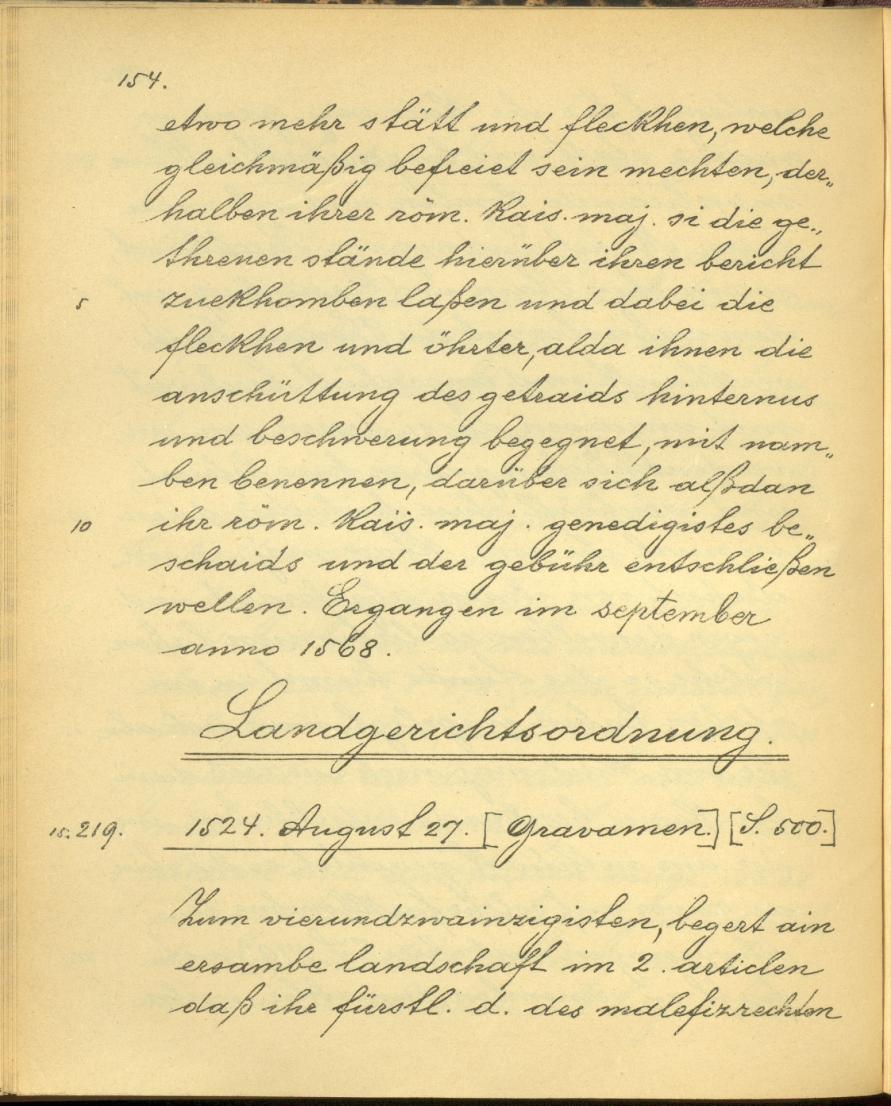 154.
etwo mehr stätt und fleckhen, welche
gleichmäßig befreiet sein mechten, der„
halben ihrer röm. Kais. maj. si die ge„
threuen stände hierüber ihren bericht
5 zuekhomben laßen und dabei die
fleckhen und öhrter, alda ihnen die
anschüttung des getraids hinternus
und beschwerung begegnet, mit nam„
ben benennen, darüber sich alßdan
10 ihr röm. Kais. maj. genedigistes be„
schaids und der gebühr entschließen
wellen. Ergangen im september
anno 1568.
Landgerichtsordnung.
15. 219. 1524. August 27. [Gravamen.] [S. 500.]
Zum vierundzwainzigisten, begert ain
ersambe landschaft im 2. articlen
daß ihr fürstl. d. des malefizrechten